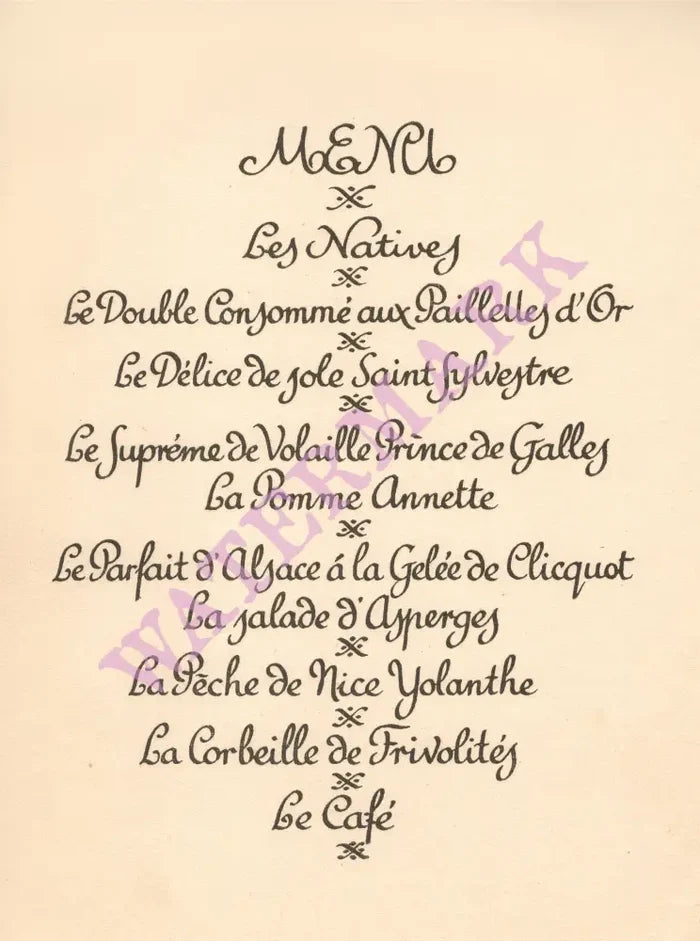 MENU
Les Natives
Le Double Consommé aux Paillettes d'Or
Le Délice de sole Saint Sylvestre
Le Supréme de Volaille Prince de Galles
La Pomme Annette
Le Parfait d'Alsace á la Gelée de Clicquot
La salade d'Asperges
La Pêche de Nice Yolanthe
La Corbeille de Frivolités
Le Café
WATERMARK